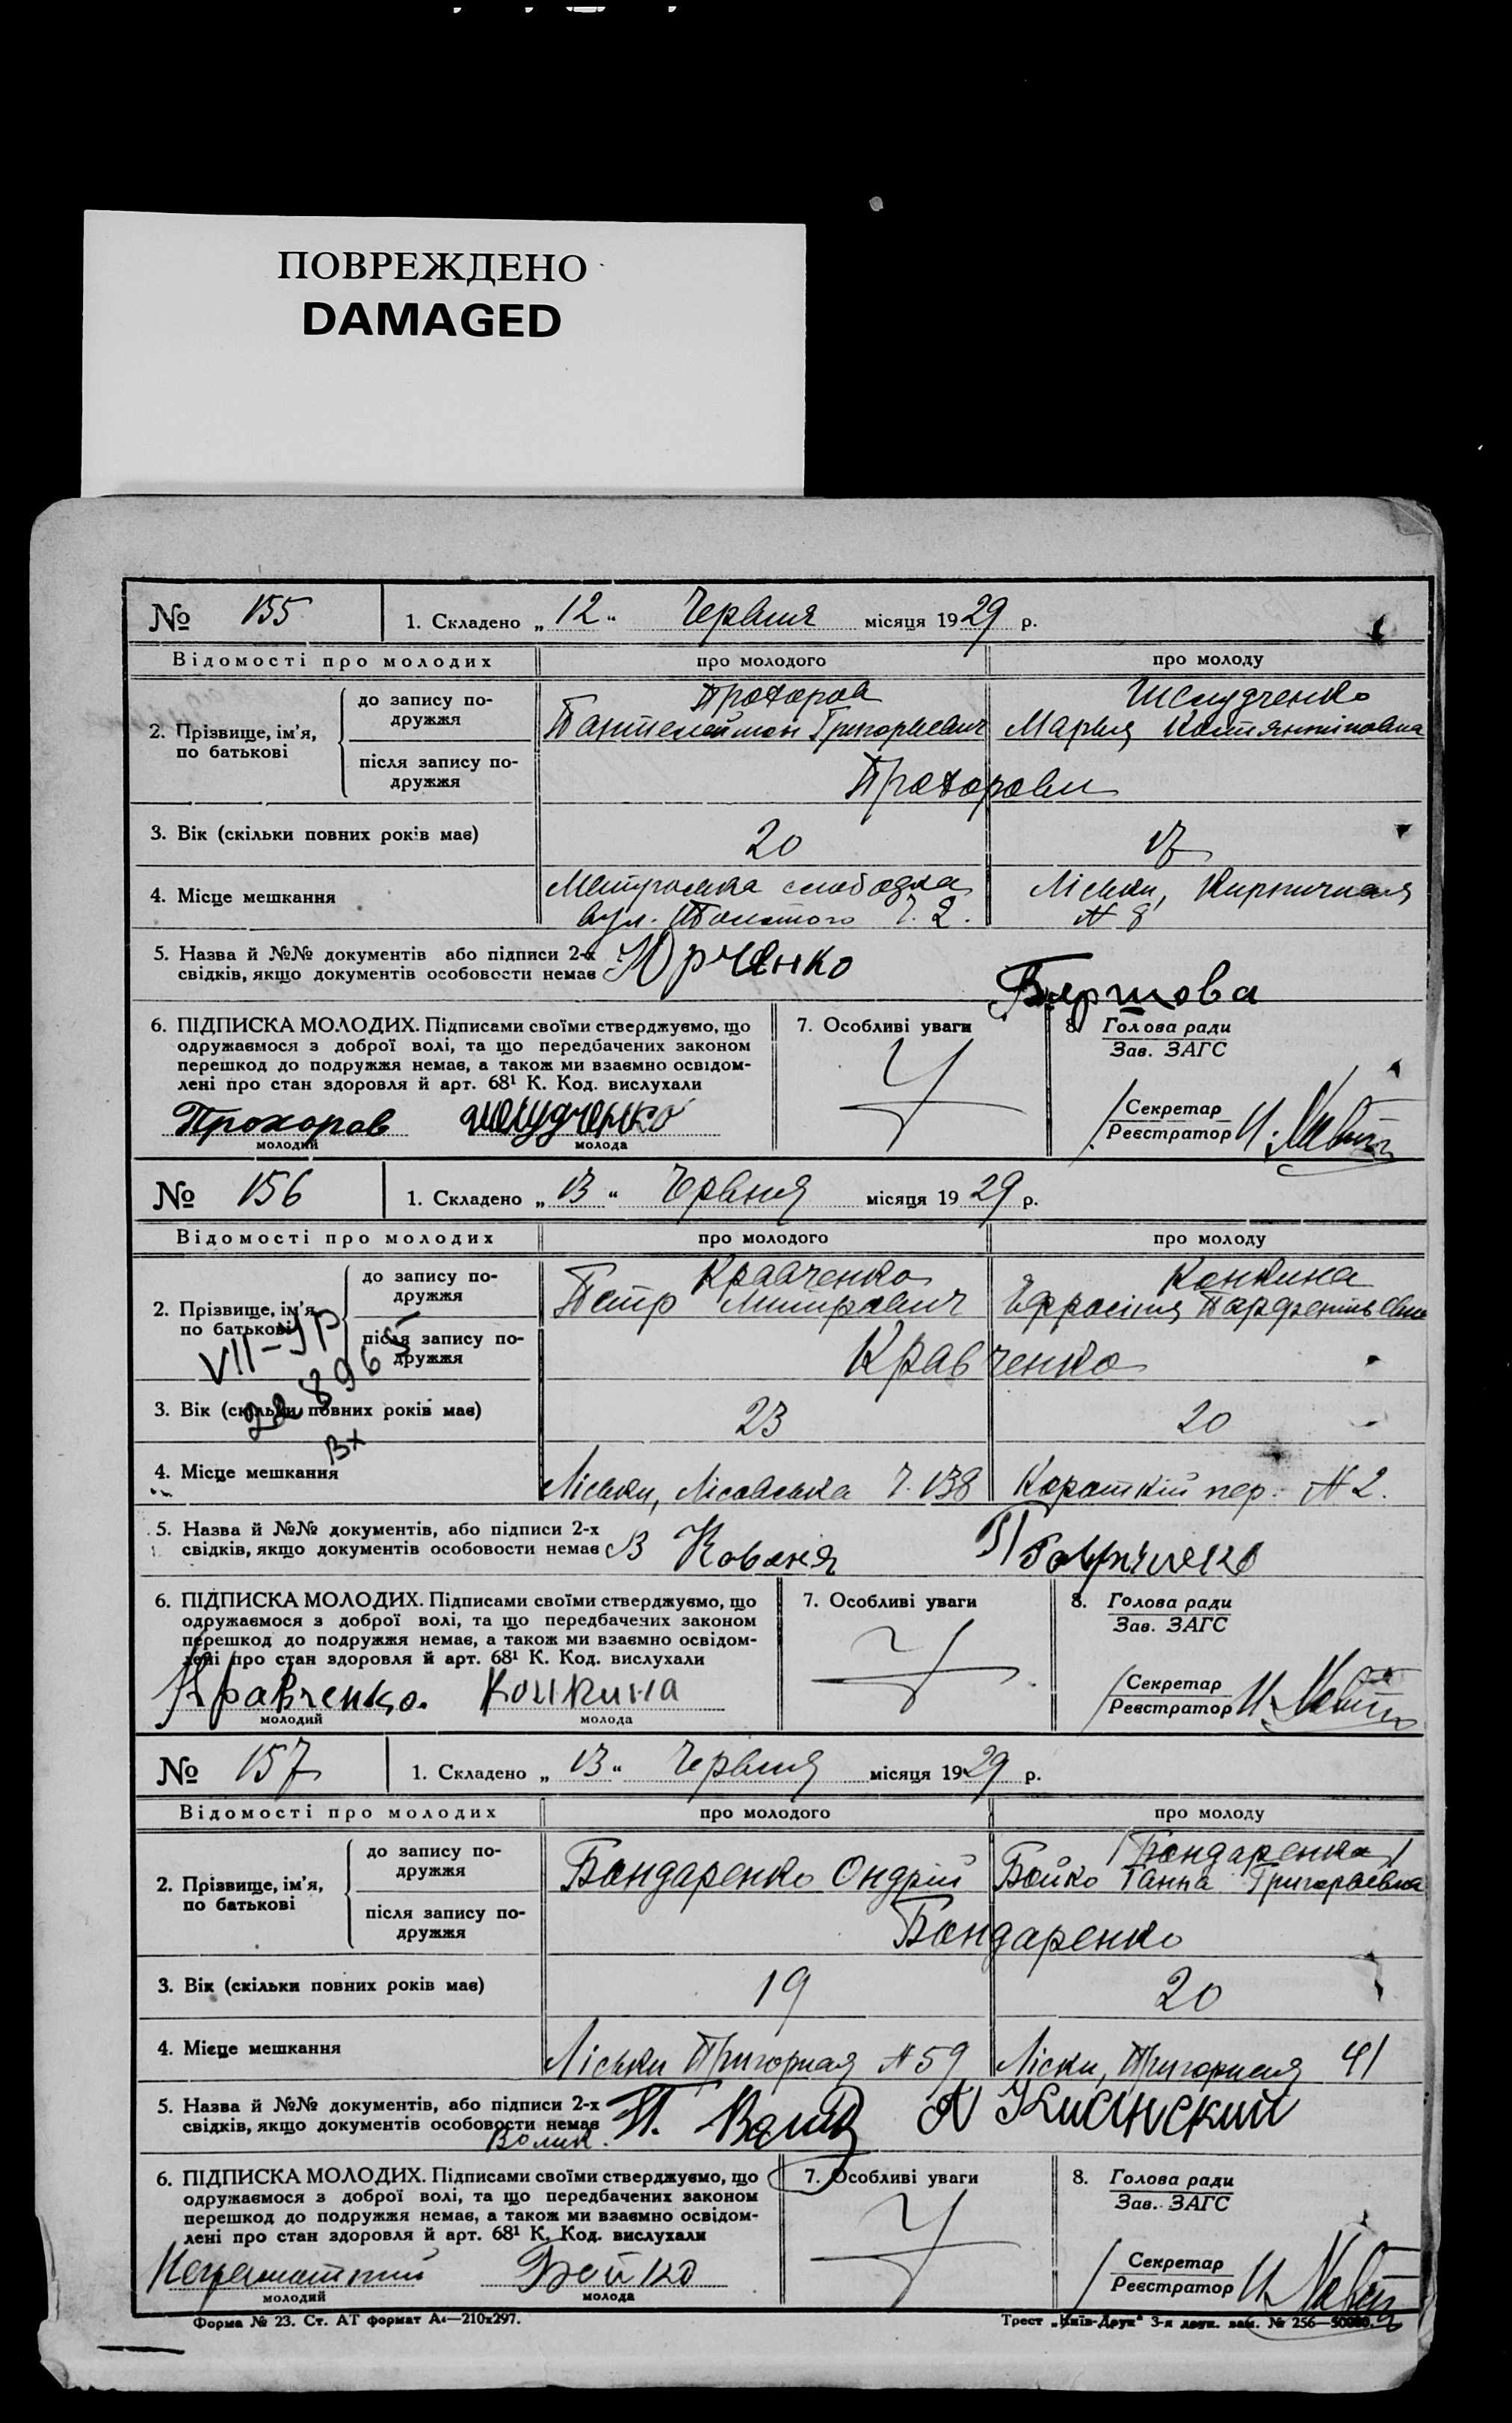 ПОВРЕЖДЕНО
DAMAGED
№ 155 1. Складено „ 12 “ Червня місяця 1929 р.
Відомості про молодих про молодого про молоду
2. Прізвище, ім’я, по батькові
до запису по-
дружжя
Прохоров
Пантелеймон Григорьевич
Шелудченко
Мария
після запису по-
дружжя
Прохорови
3. Вік (скільки повних років має) 20 17
4. Місце мешкання
слободка
вул. Ч. 2.
Ліськи, Кирпичная
№ 8
5. Назва й №№ документів або підписи 2-х
свідків, якщо документів особовости немає
Юрченко
6. ПІДПИСКА МОЛОДИХ. Підписами своїми стверджуємо, що
одружаємося з доброї волі, та що передбачених законом
перешкод до подружжя немає, а також ми взаємно освідом-
лені про стан здоровля й арт. 68¹ К. Код. вислухали
Прохоров Шелудченко
молодий молода
7. Особливі уваги
8. Голова ради
Зав. ЗАГС
Секретар
Реєстратор
№ 156 1. Складено „ 13 “ Червня місяця 1929 р.
Відомості про молодих про молодого про молоду
2. Прізвище, ім’я,
по батькові
до запису по-
дружжя
Кравченко
Петр Митрович
Конкина
після запису по-
дружжя
Кравченко
VII-УР
3. Вік (скільки повних років має) 23 20
4. Місце мешкання
Ліськи, Лісавська Ч. 138
Короткій пер. № 2.
5. Назва й №№ документів, або підписи 2-х
свідків, якщо документів особовости немає
6. ПІДПИСКА МОЛОДИХ. Підписами своїми стверджуємо, що
одружаємося з доброї волі, та що передбачених законом
перешкод до подружжя немає, а також ми взаємно освідом-
лені про стан здоровля й арт. 68¹ К. Код. вислухали
Кравченко. Конкина
молодий молода
7. Особливі уваги
8. Голова ради
Зав. ЗАГС
Секретар
Реєстратор
№ 157 1. Складено „ 13 “ Червня місяця 1929 р.
Відомості про молодих про молодого про молоду
2. Прізвище, ім’я,
по батькові
до запису по-
дружжя
Бондаренко Ондрій
/Бондаренко/
Бойко Ганна Григорьевна
після запису по-
дружжя
Бондаренко
3. Вік (скільки повних років має) 19 20
4. Місце мешкання
Ліськи Пригорная № 59
Ліски, Пригорная 41
5. Назва й №№ документів, або підписи 2-х
свідків, якщо документів особовости немає
Волик.
6. ПІДПИСКА МОЛОДИХ. Підписами своїми стверджуємо, що
одружаємося з доброї волі, та що передбачених законом
перешкод до подружжя немає, а також ми взаємно освідом-
лені про стан здоровля й арт. 68¹ К. Код. вислухали
Бойко
молодий молода
7. Особливі уваги
8. Голова ради
Зав. ЗАГС
Секретар
Реєстратор
Форма № 23. Ст. АТ формат А₄—210х297.
Трест „Київ-Друк“ 3-я друк. зам. № 256—50000.